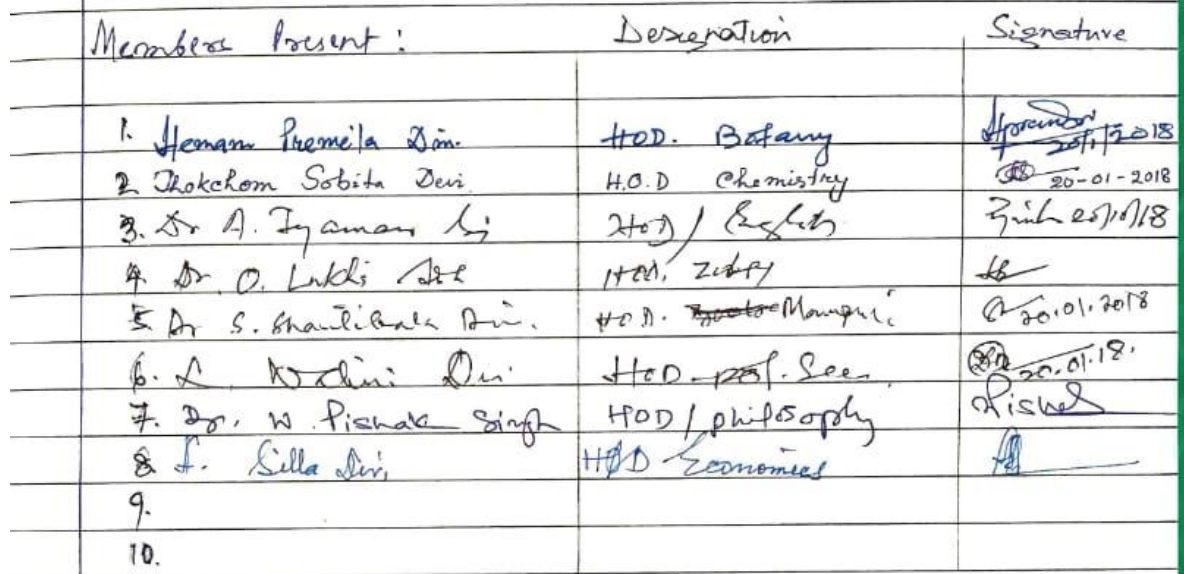 Members Present : Designation Signature
1. Hemam Premila Devi. HOD. Botany 20/1/2018
2. Thokchom Sobita Devi H.O.D Chemistry 20-01-2018
3. Dr A. HOD / English
4. Dr. O. HOD.
5. Dr S. Shantibala Devi. HOD. Manipuri 20.01.2018
6. L. Devi HOD 20.01.18.
7. Dr. W. Pishak Singh HOD / philosophy Pishak
8. Silla Devi, HOD Economics
9.
10.